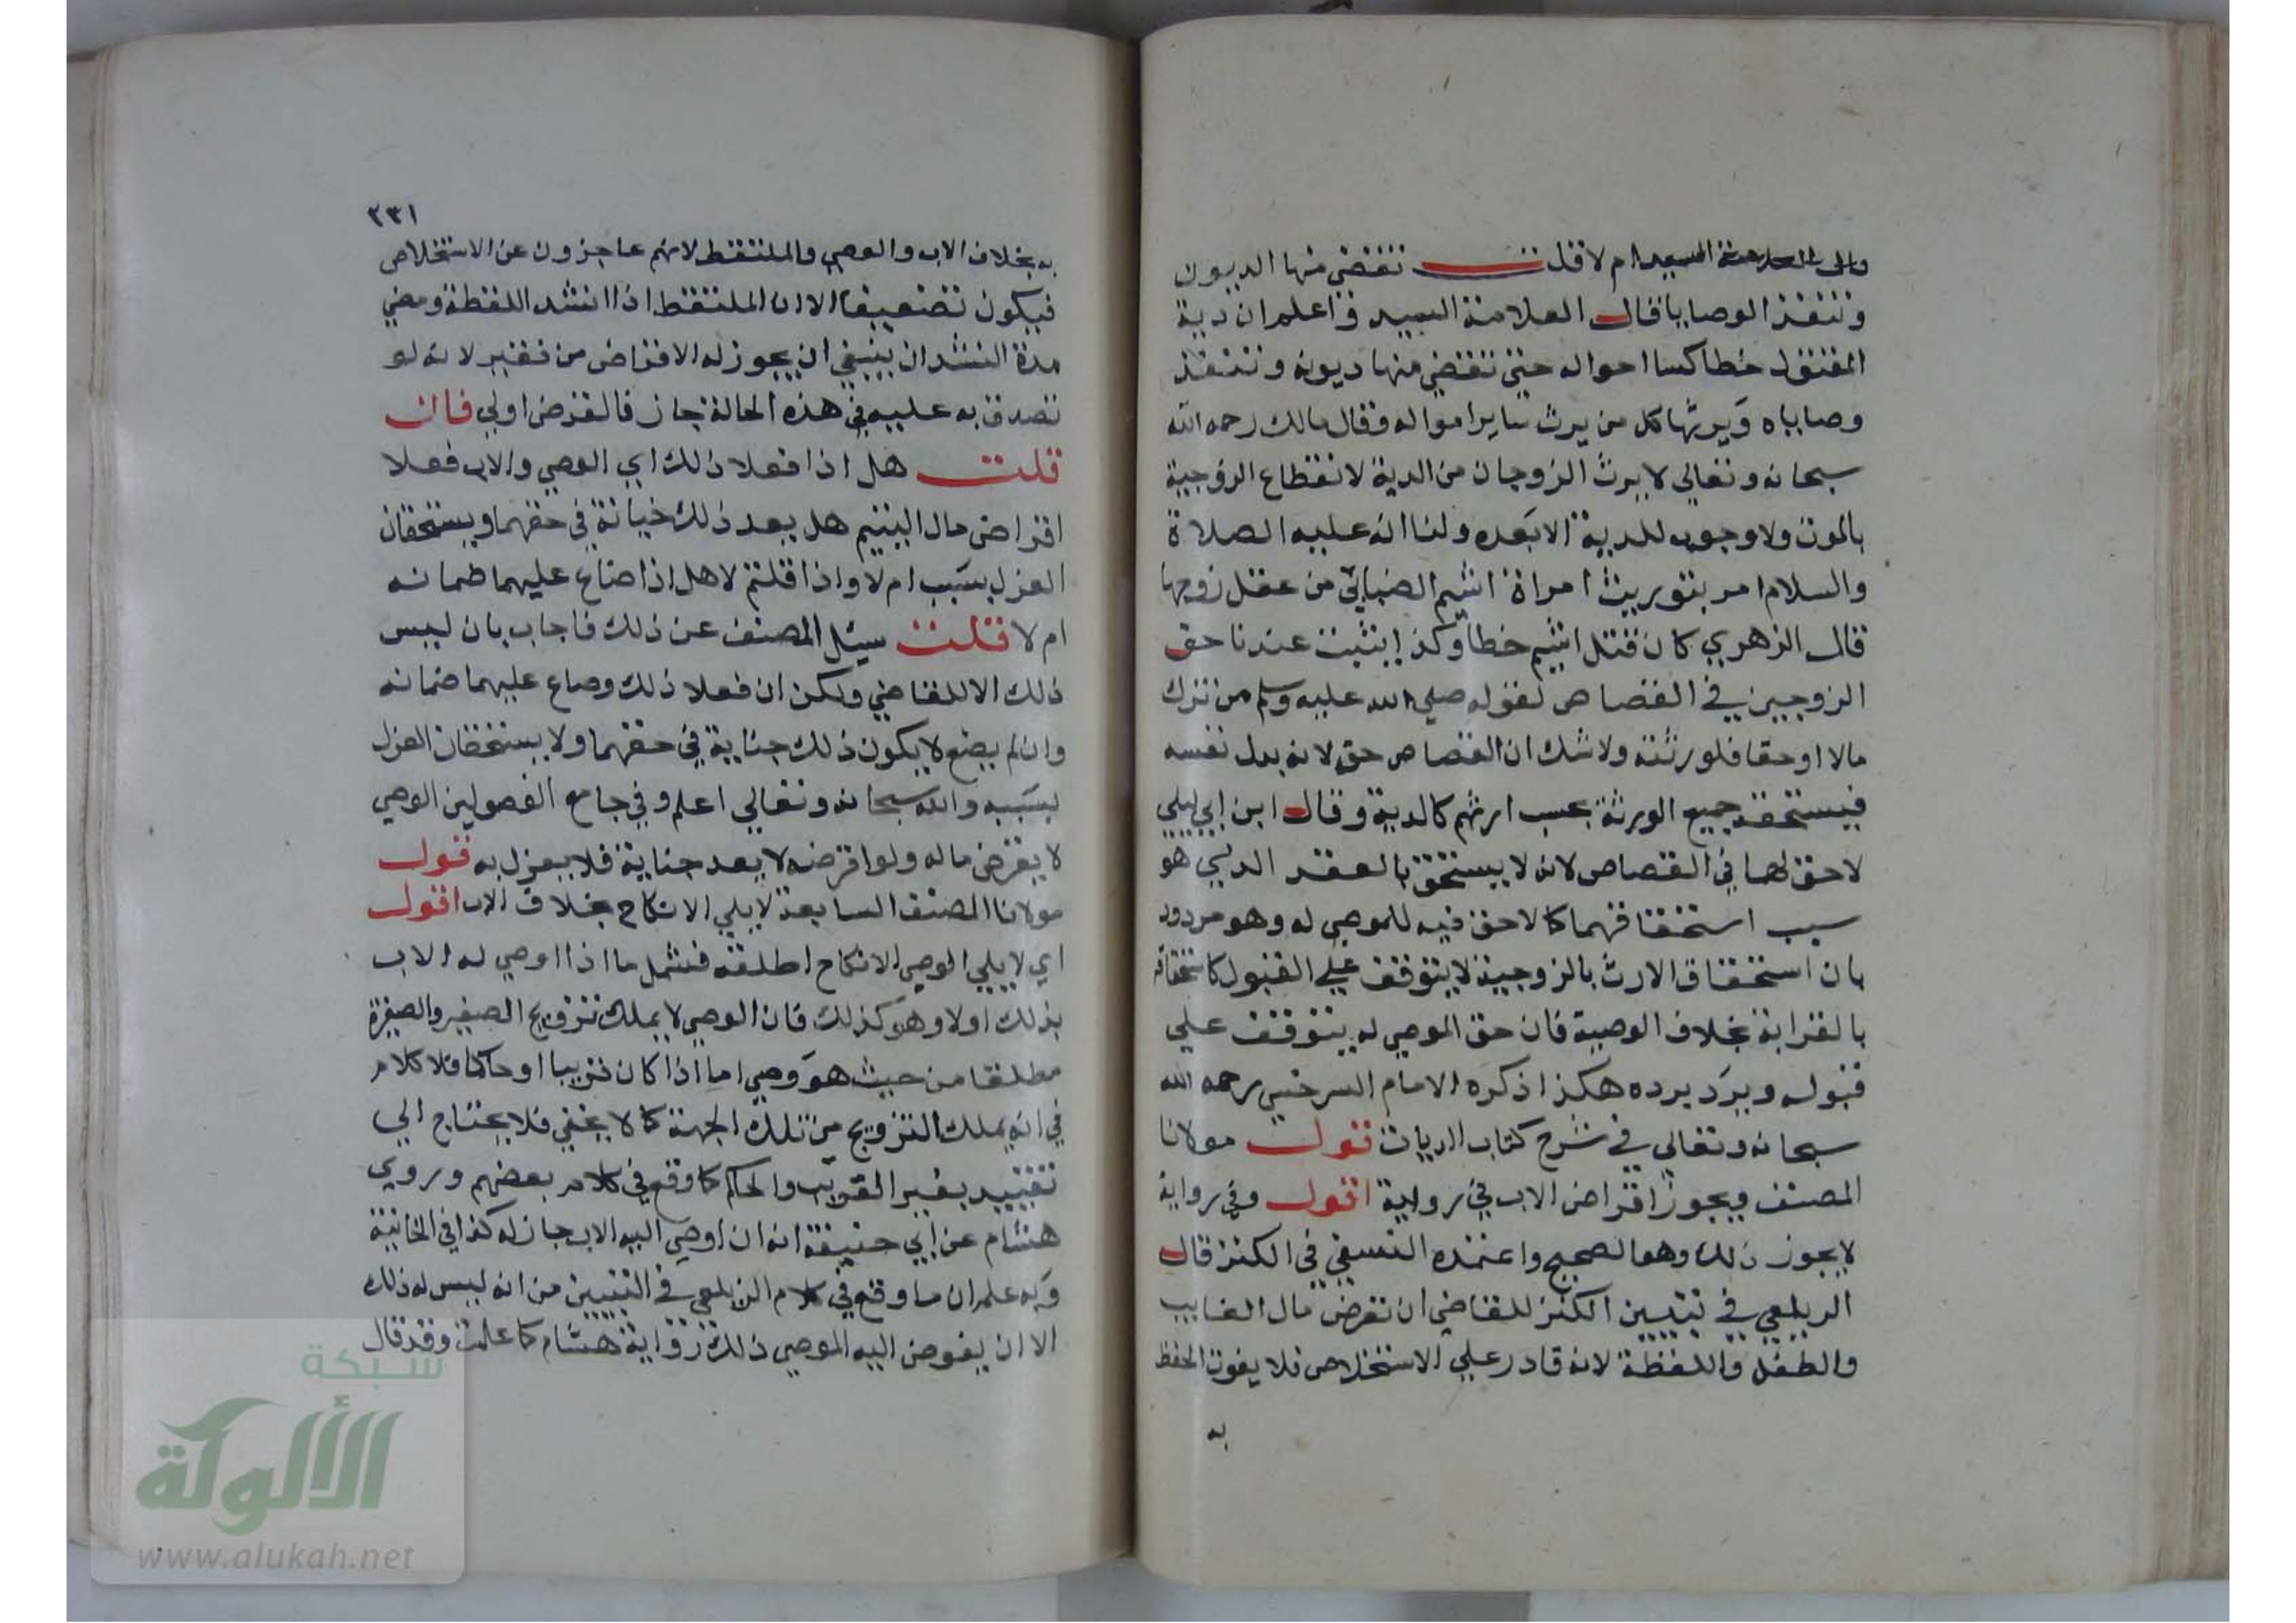 ام لا قلت تقضى منها الديون
وتنفذ الوصايا قال العلامة السيد واعلم ان دية
المقتول خطا كسا احواله حتى تقضي منها ديونه وتنفذ
وصاياه ويرثها كل من يرث ساير امواله وقال مالك رحمه الله
سبحانه وتعالي لا يرث الزوجان من الدية لانقطاع الزوجية
بالموت ولا وجوب للدية الا بعده ولنا انه عليه الصلاة
والسلام امر بتوريث امراة اشيم الضبابي من عقل زوجها
قال الزهري كان قتل اشيم خطأ وكذا يثبت عندنا حق
الزوجين في القصاص لقوله صلي الله عليه وسلم من ترك
مالا او حقا فلورثته ولا شك ان القصاص حق لانه بدل نفسه
فيستحقه جميع الورثة بحسب ارثهم كالدية وقال ابن ابي ليلي
لا حق لهما في القصاص لانه لا يستحق بالعقد الذي هو
سبب استحقاقهما كما لا حق فيه للموصي له وهو مردود
بان استحقاق الارث بالزوجية لا يتوقف علي القبول كاستحقاقه
بالقرابة بخلاف الوصية فان حق الموصي له يتوقف علي
قبوله ويرد برده هكذا ذكره الامام السرخسي رحمه الله
سبحانه وتعالي في شرح كتاب الديات قول مولانا
المصنف ويجوز اقراض الاب في رواية اقول وفي رواية
لا يجوز ذلك وهو الصحيح واعتمده النسفي في الكنز قال
الزيلعي في تبيين الكنز للقاضي ان تقرض مال الغايب
والطفل واللقطة لانه قادر علي الاستخلاص فلا يفوت الحفظ
به
٢٣١
به بخلاف الاب والوصي والملتقط لانهم عاجزون عن الاستخلاص
فيكون تضعيفا الا ان الملتقط اذا انشد اللقطة ومضي
مدة النشدان ينبغي ان يجوز له الاقراض من فقير لانه لو
تصدق به عليه في هذه الحالة جاز فالقرض اولي فان
قلت هل اذا فعلا ذلك اي الوصي والاب فعلا
اقراض مال اليتيم هل يعد ذلك خيانة في حقهما ويستحقان
العزل بسبب ام لا واذا قلتم لا هل اذا ضاع عليهما ضمانه
ام لا قلت سيئل المصنف عن ذلك فاجاب بان ليس
ذلك الا للقاضي ولكن ان فعلا ذلك وضاع عليهما ضمانه
وان لم يضع لا يكون ذلك جناية في حقهما ولا يستحقان العزل
بسببه والله سبحانه وتعالي اعلم وفي جامع الفصولين الوصي
لا يقرض ماله ولو اقرضه لا يعد جناية فلا يعزل به قول
مولانا المصنف السابعة لا يلي الانكاح بخلاف الاب اقول
اي لا يلي الوصي الانكاح اطلقه فشمل ما اذا اوصي له الاب
بذلك اولا وهو كذلك فان الوصي لا يملك تزويج الصغير والصغيرة
مطلقا من حيث هو وصي اما اذا كان قريبا او حاكما فلا كلام
في انه يملك التزويج من تلك الجهة كما لا يخفي فلا يحتاج الي
تقييد بغير القريب والحاكم كما وقع في كلام بعضهم وروي
هشام عن ابي حنيفة انه ان اوصي اليه الاب جاز له كذا في الخانية
وبه علم ان ما وقع في كلام الزيلعي في التبيين من انه ليس له ذلك
الا ان يفوض اليه الموصي ذلك رواية هشام كما علمت وقد قال
شبكة
الألوكة
www.alukah.net